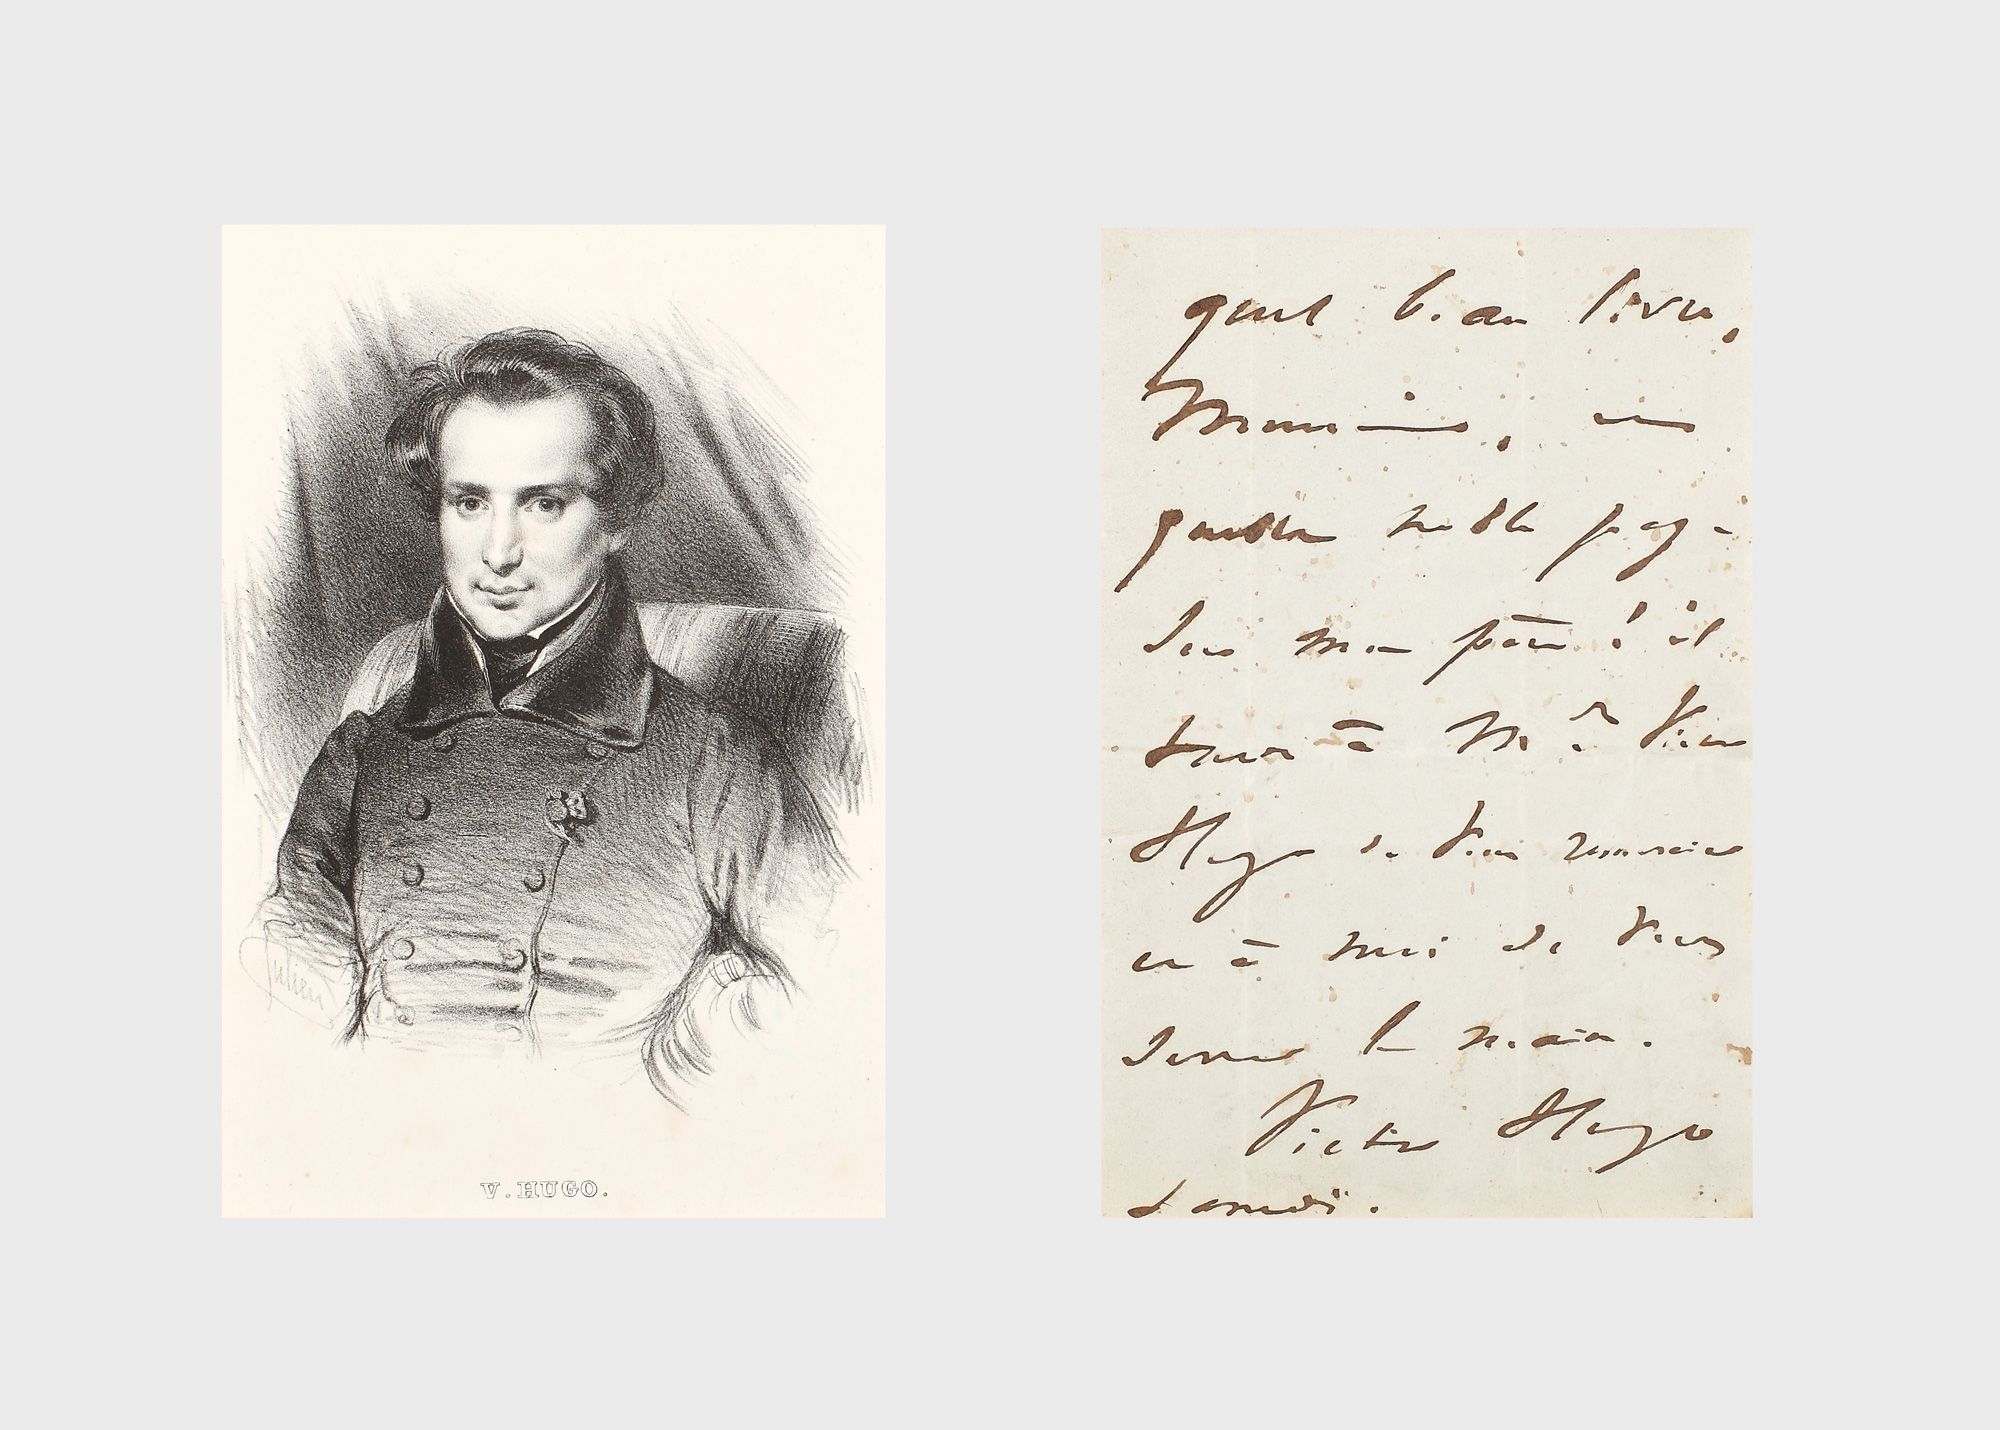 Julien
V. HUGO.
quel beau livre,
Monsieur, et
quelle noble page
sur mon père ! il
tarde à Victor
Hugo de vous remercier
et à moi de vous
serrer la main.
Victor Hugo
Samedi.